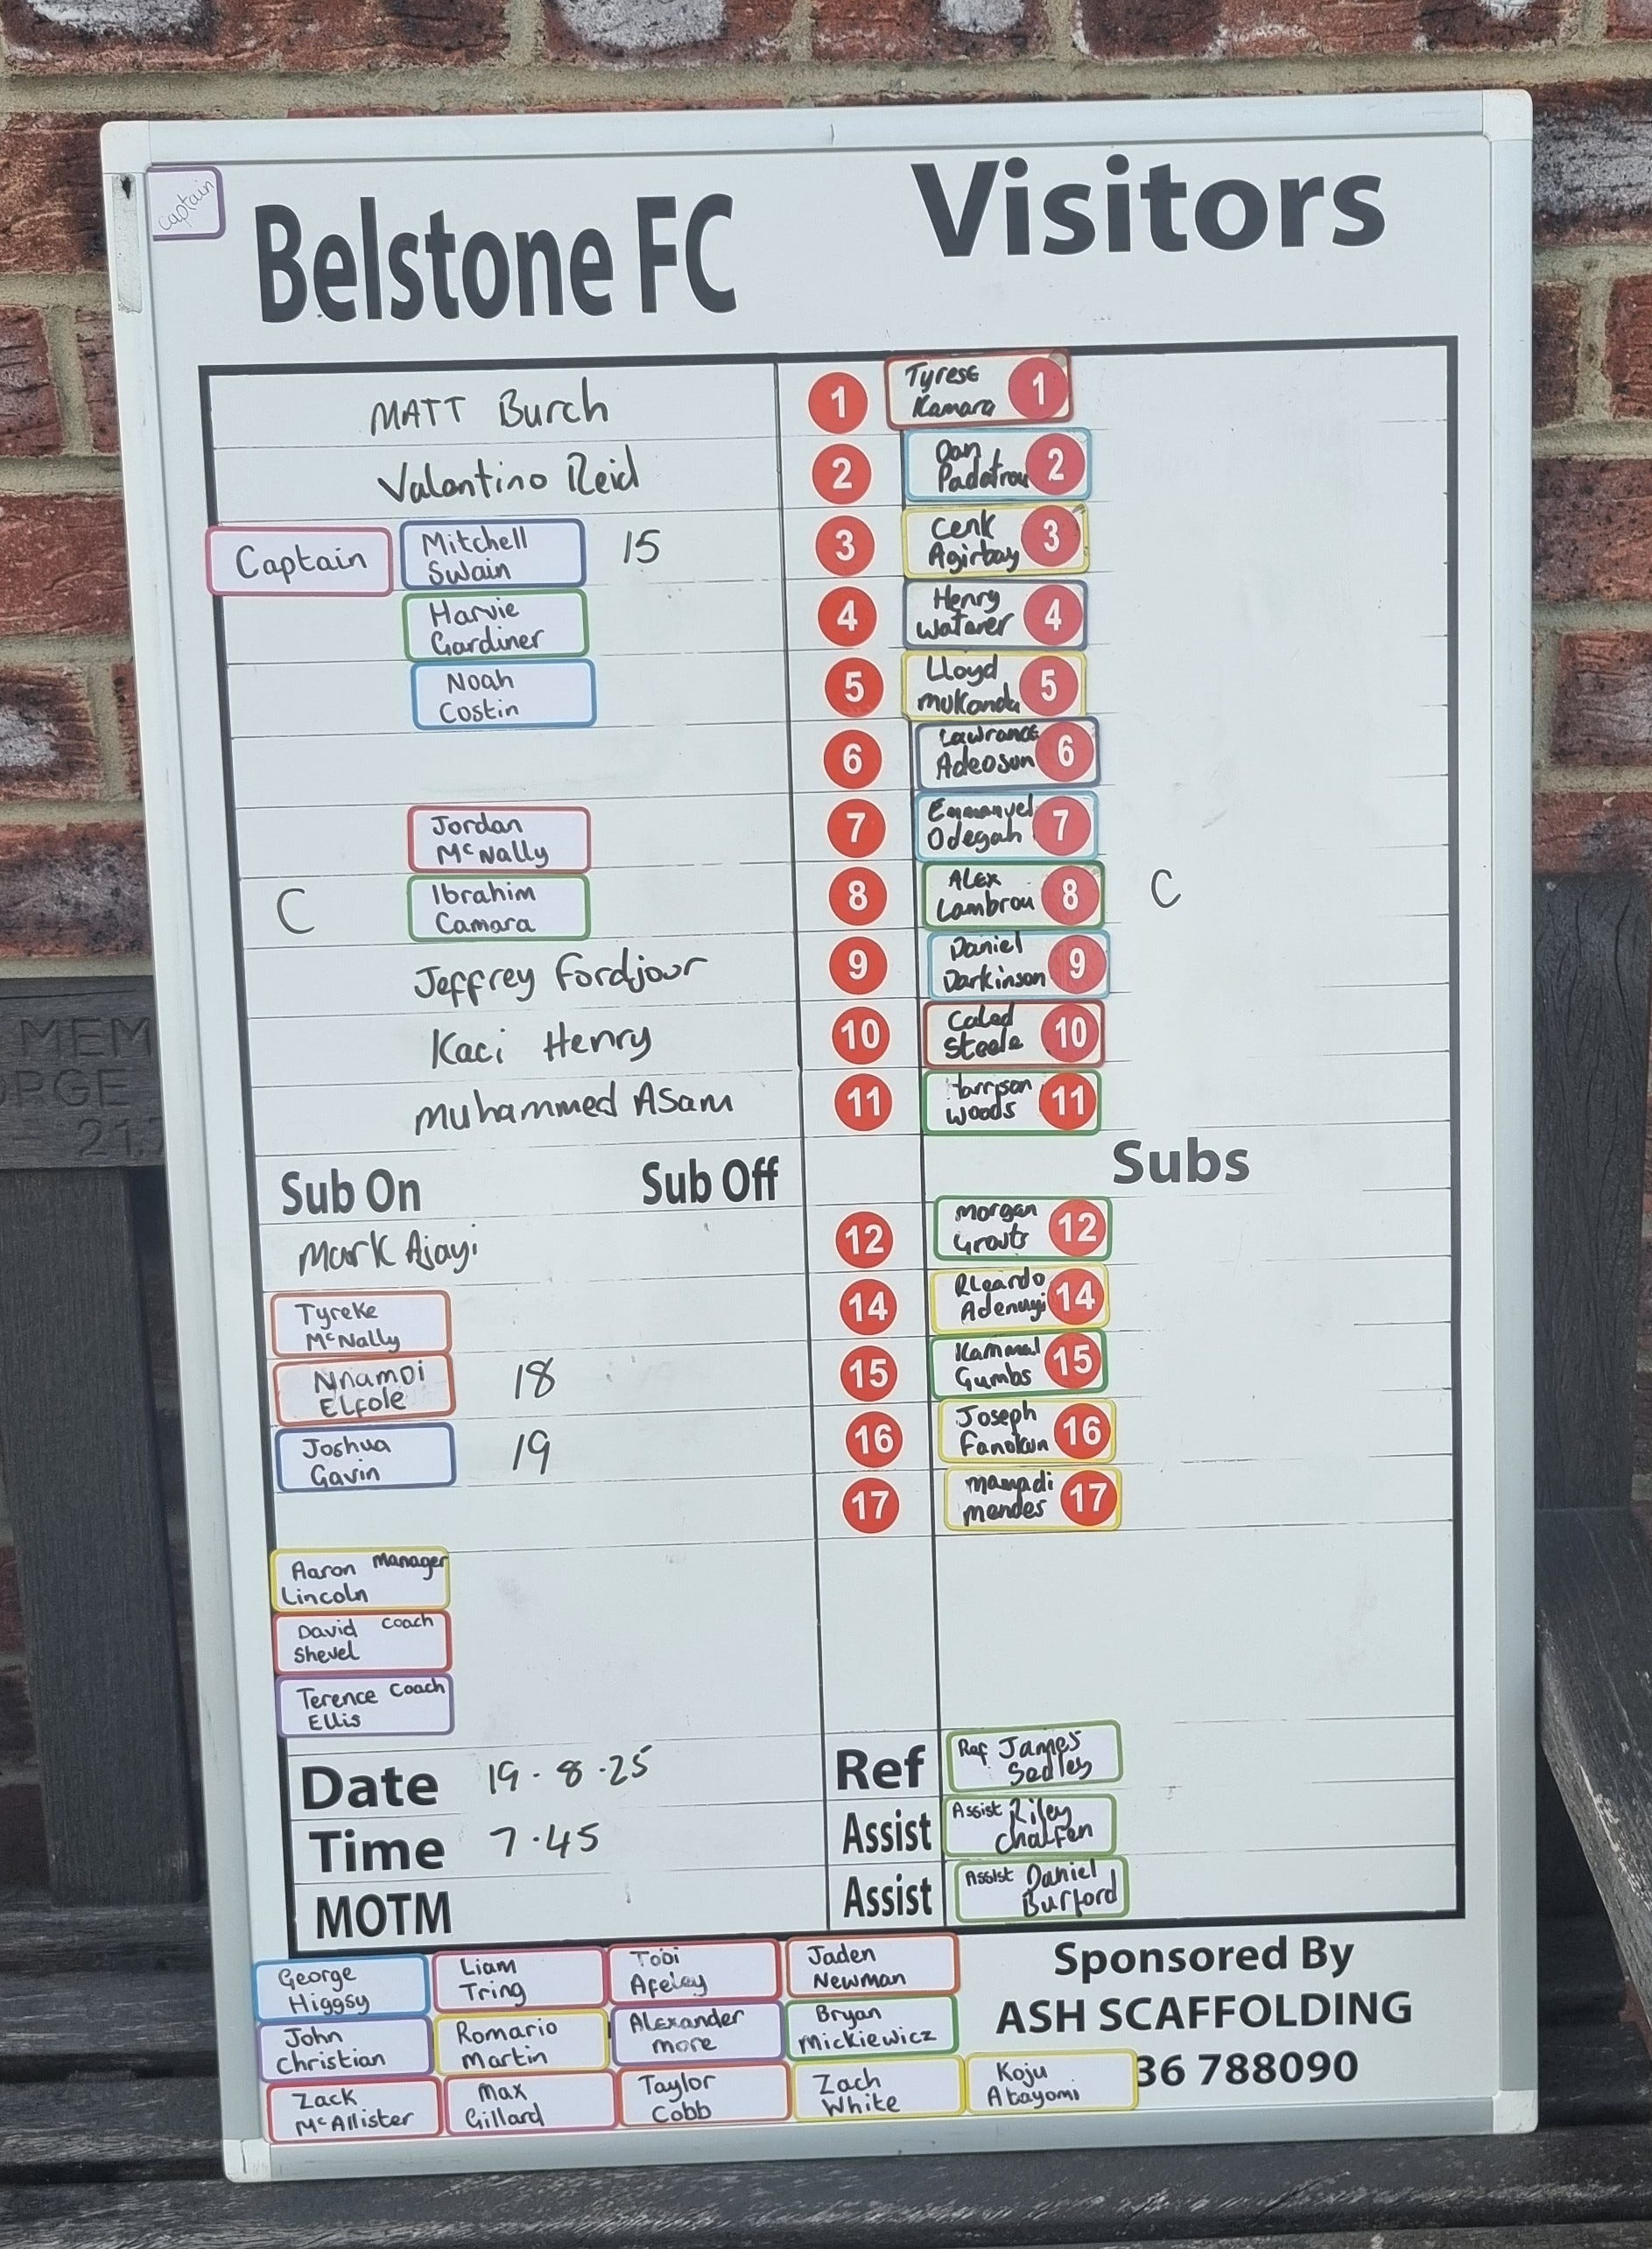 Captain
Belstone FC Visitors
MATT Burch 1 Tyrese Kamara 1
Valantino Reid 2 Dan 2
Captain Mitchell Swain 15 3 Cenk Agirbay 3
Harvie Gardiner 4 Henry Waterer 4
Noah Costin 5 Lloyd Mukanda 5
6 Lawrance Adeosun 6
Jordan McNally 7 Emmanuel Odegah 7
C Ibrahim Camara 8 ALEX Lambrou 8 C
Jeffrey Fordjour 9 Daniel Darkinson 9
Kaci Henry 10 Caled Steele 10
Muhammed Asam 11 Harrison Woods 11
Sub On Sub Off Subs
Mark Ajayi 12 Morgan 12
Tyreke McNally 14 Adenuyi 14
Nnamdi ELFole 18 15 Kammal Gumbs 15
Joshua Gavin 19 16 Joseph Fanokun 16
17 Mamadi Mendes 17
Aaron Manager
Lincoln
David Coach
Shevel
Terence Coach
Ellis
Date 19.8.25 Ref Ref James Sedley
Time 7.45 Assist Assist Riley Chalfen
MOTM Assist Assist Daniel Burford
George Higgsy Liam Tring Tobi Afeley Jaden Newman
John Christian Romario Martin Alexander More Bryan Mickiewicz
Zack McAllister Max Gillard Taylor Cobb Zach White Koju Abayomi
Sponsored By
ASH SCAFFOLDING
36 788090
MEM
ORGE
21.7